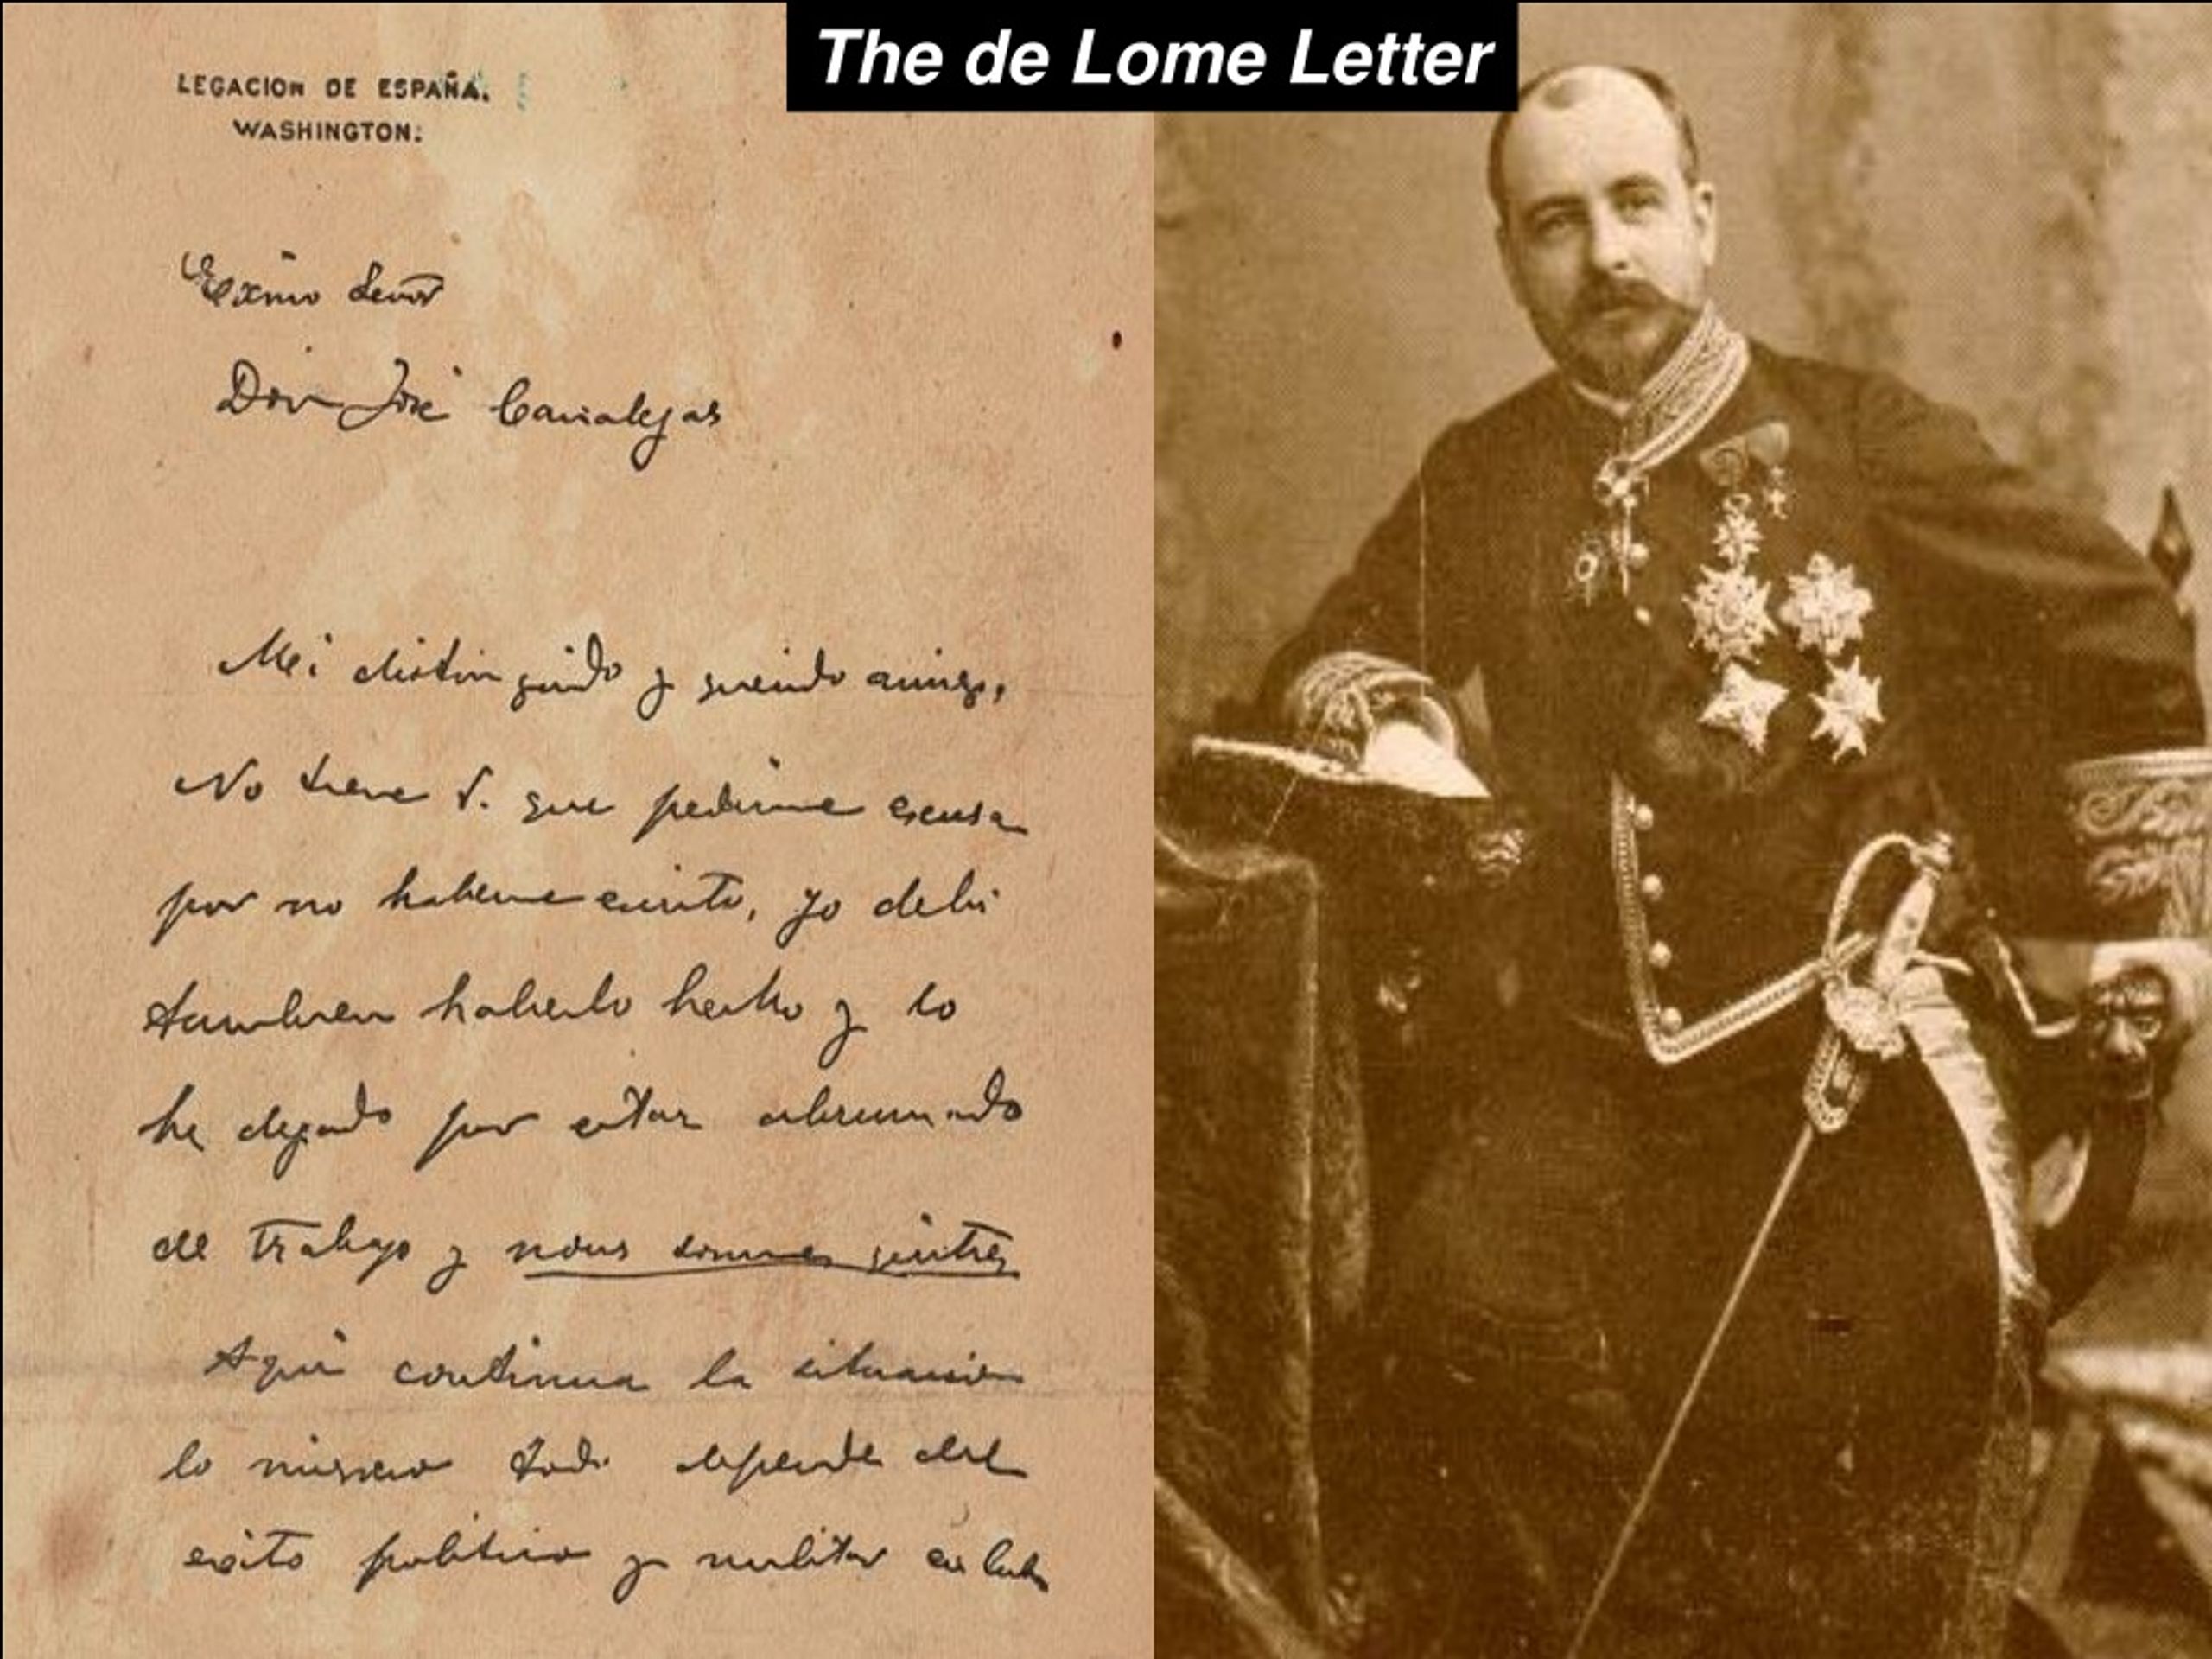 The de Lome Letter
LEGACION DE ESPAÑA.
WASHINGTON.
Exmo Señor
Don José Canalejas
Mi distinguido y querido amigo,
No tiene V. que pedirme escusa
por no haberme escrito, yo debi
tambien haberlo hecho y lo
he dejado por estar abrumado
de trabajo y nous sommes quittes
Aqui continua la situacion
lo mismo todo depende del
exito politico y militar en Cuba